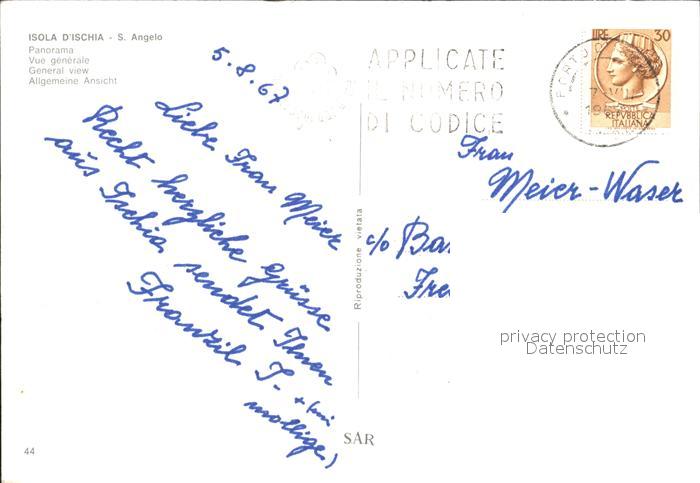 ISOLA D'ISCHIA - S. Angelo
Panorama
Vue générale
General view
Allgemeine Ansicht
5.8.67
Liebe Frau Meier
Recht herzliche Grüsse
aus Ischia sendet Ihnen
APPLICATE
IL NUMERO
DI CODICE
LIRE 30
REPVBBLICA
ITALIANA
Frau
Meier-Waser
c/o Ba
Fre
Riproduzione vietata
privacy protection
Datenschutz
SAR
44